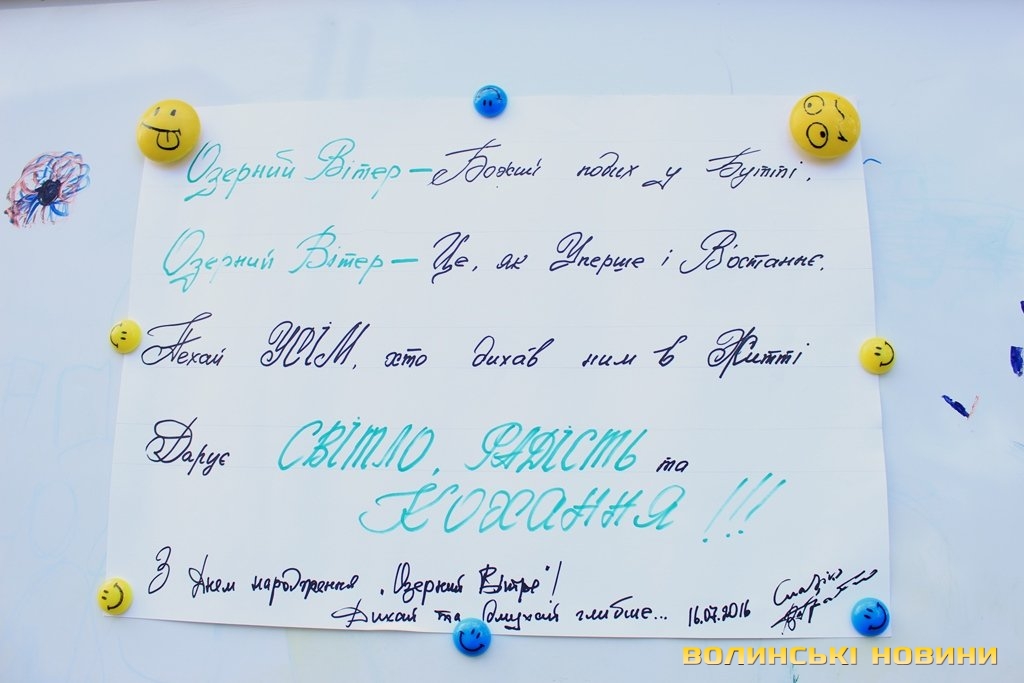 Озерний Вітер — Божий подих у Бутті.
Озерний Вітер — Це, як Уперше і Востаннє.
Нехай УСІМ, хто дихав ним в Житті
Дарує СВІТЛО, РАДІСТЬ та
КОХАННЯ!!!
З Днем народження „Озерний Вітре"!
Дихай та глибше... 16.07.2016
ВОЛИНСЬКІ НОВИНИ